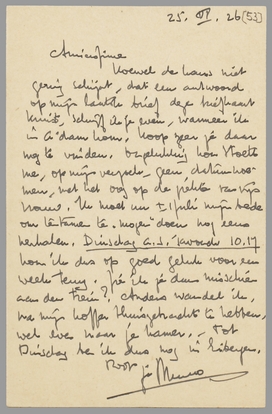 25. VI. 26 [53]
Amicissime
Hoewel de kans niet
gering schijnt, dat een antwoord
op mijn laatste brief deze
kruist, schrijf ik je even, wanneer ik
in A'dam kom, hoop zeer je daar
nog te vinden. kon
me, op mijn verzoek, geen datum noe-
men, met het oog op de ziekte van zijn
vrouw. Ik moet nu 1 Juli mijn bede
om te mogen doen nog eens
herhalen. Dinsdag a.s. 's avonds 10.17
kom ik dus op goed geluk voor een
week terug. Zie ik je dan misschien
aan den trein? Anders wandel ik,
na mijn koffer thuisgebracht te hebben,
wel even naar je kamer. — Tot
Dinsdag ben ik dus nog in
Voor
je Menno